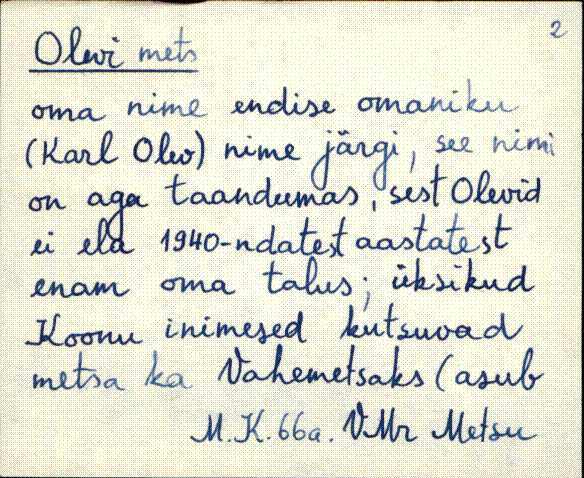 2
Olevi mets
oma nime endise omaniku
(Karl Olev) nime järgi, see nimi
on aga taandumas, sest Olevid
ei ela 1940-ndatest aastatest
enam oma talus; üksikud
Koonu inimesed kutsuvad
metsa ka Vahemetsaks (asub
M.K. 66a. VMr Metsu